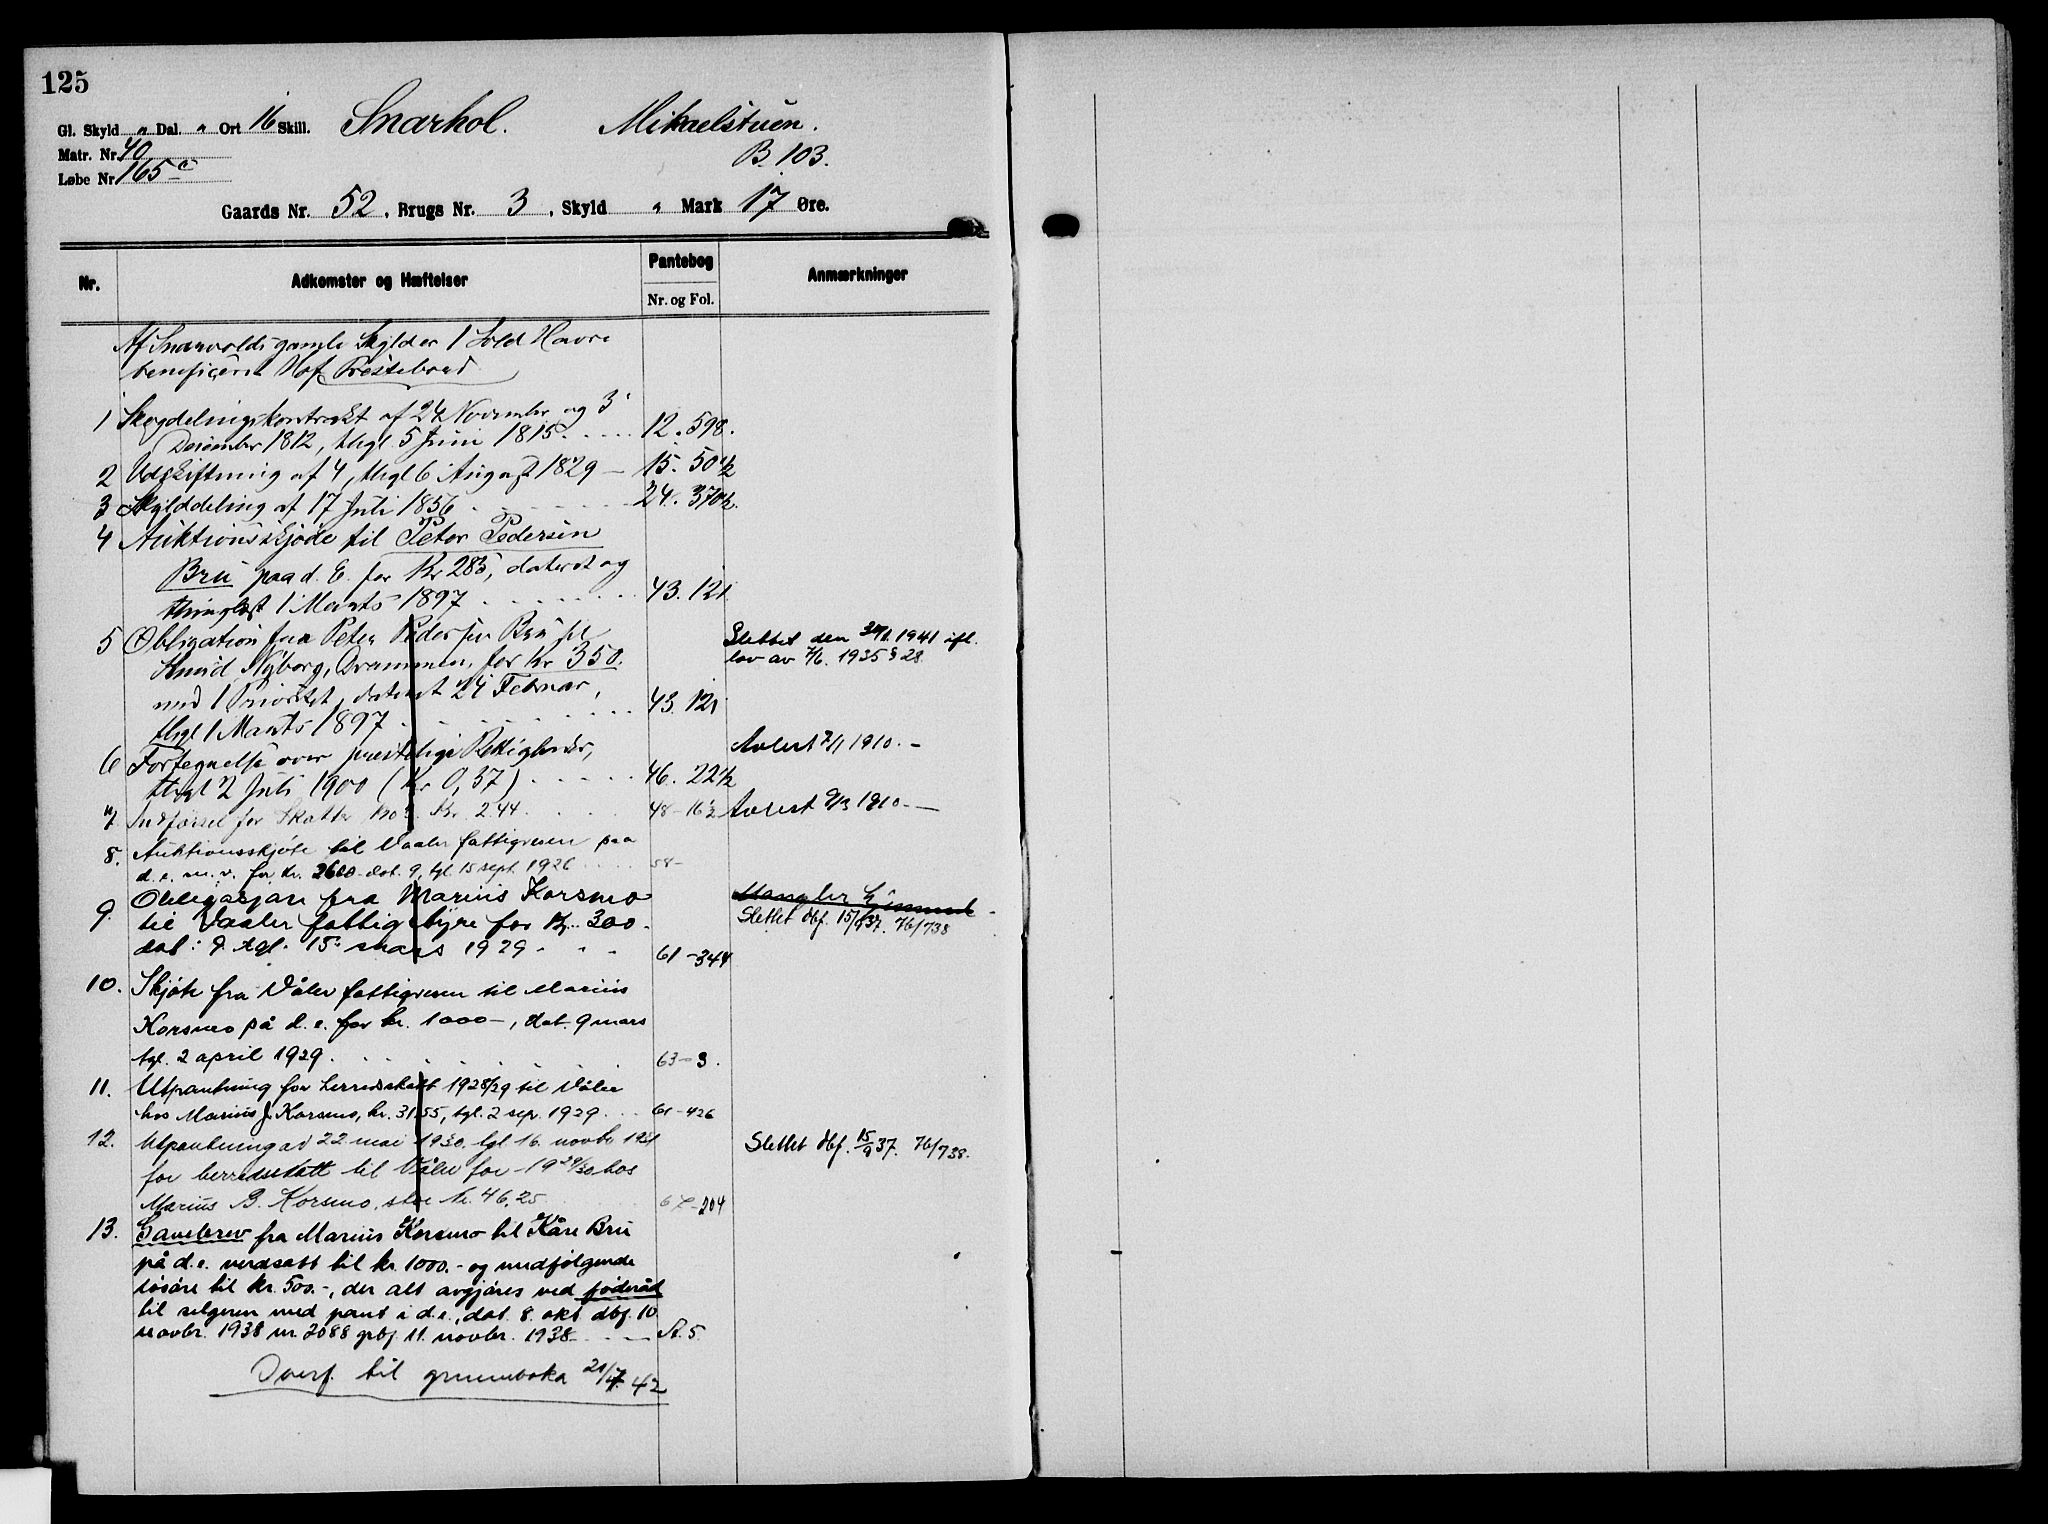 125
Gl. Skyld „ Dal. „ Ort 16 Skill. Snarhol. Mikaelstuen.
Matr. Nr. 40 B. 103.
Løbe Nr. 165 c
Gaards Nr. 52, Brugs Nr. 3, Skyld „ Mark 17 Øre.
Nr. Adkomster og Hæftelser Pantebog Nr. og Fol. Anmærkninger
Af Snarvolds gamle Skyld er 1 Sold Havre
beneficeret Prestebord
1 Skyddelingskontrakt af 24 November og 3
December 1812, thgl. 5 Juni 1815. 12. 598.
2 Udskiftning af 4, thgl 6 August 1829 — 15. 50 1/2
3 Skylddeling af 17 Juli 1856 24. 370 1/2.
4 Auktionsskjøde til Peter Pedersen
Bru paa d. E. for Kr 285, dateret og
thinglæst 1 Marts 1897 43. 121
5 Obligation fra Peter Pedersen Bru til
Nyborg, Drammen, for Kr 350.
med 1 Prioritet, dateret 24 Februar,
thgl 1 Marts 1897 43. 121
Slettet den 1941 ifl.
lov av 7/6. 1935 § 28.
6 Fortegnelse over prestelige Rettigheder,
thgl 2 Juli 1900 (Kr 0,37) 46. 22 1/2
Avlest 7/1 1910. –
7. Indførsel for Skatter Kr. 2.44 48-16 1/2 Avlest 9/3 1910. —
8. Auktionsskjøte til Vaaler fattigvesen paa
d. e. m. v. for kr. 2600 dat. 9, tgl. 15 sept. 1926 58-
9. Obligasjon fra Marius Korsmo
til Vaaler fattigstyre for Kr. 300.
dat: 9 tgl. 15. mars 1929 61-344
Mangler
Slettet dbf. 15/9 37. 76/738
10. Skjøte fra Våler fattigvesen til Marius
Korsmo på d. e. for kr. 1000 –, dat. 9 mars
tgl. 2 april 1929. 63-3.
11. Utpantning for herredskatt 1928/29 til Våler
hos Marius J. Korsmo, kr. 31.55, tgl. 2 sep. 1929. 61-426
12. Utpantning av 22. mai 1930. tgl. 16. novbr 1931
for herredskatt til Våler for 1929/30 hos
Marius B. Korsmo, stor kr. 46,25 204
Slettet dbf. 15/9 37. 76/738.
13. Gavebrev fra Marius Korsmo til Kåre Bru
på d.e. verdsatt til kr. 1000.- og medfølgende
løsøre til kr. 500.-, der alt avgjøres ved føderåd
til selgeren med pant i d.e., dat. 8. okt dbf. 10
novbr. 1938 nr. 2088 grbf. 11. novbr. 1938 — St. 5.
Overf. til grunnboka 21/7. 42